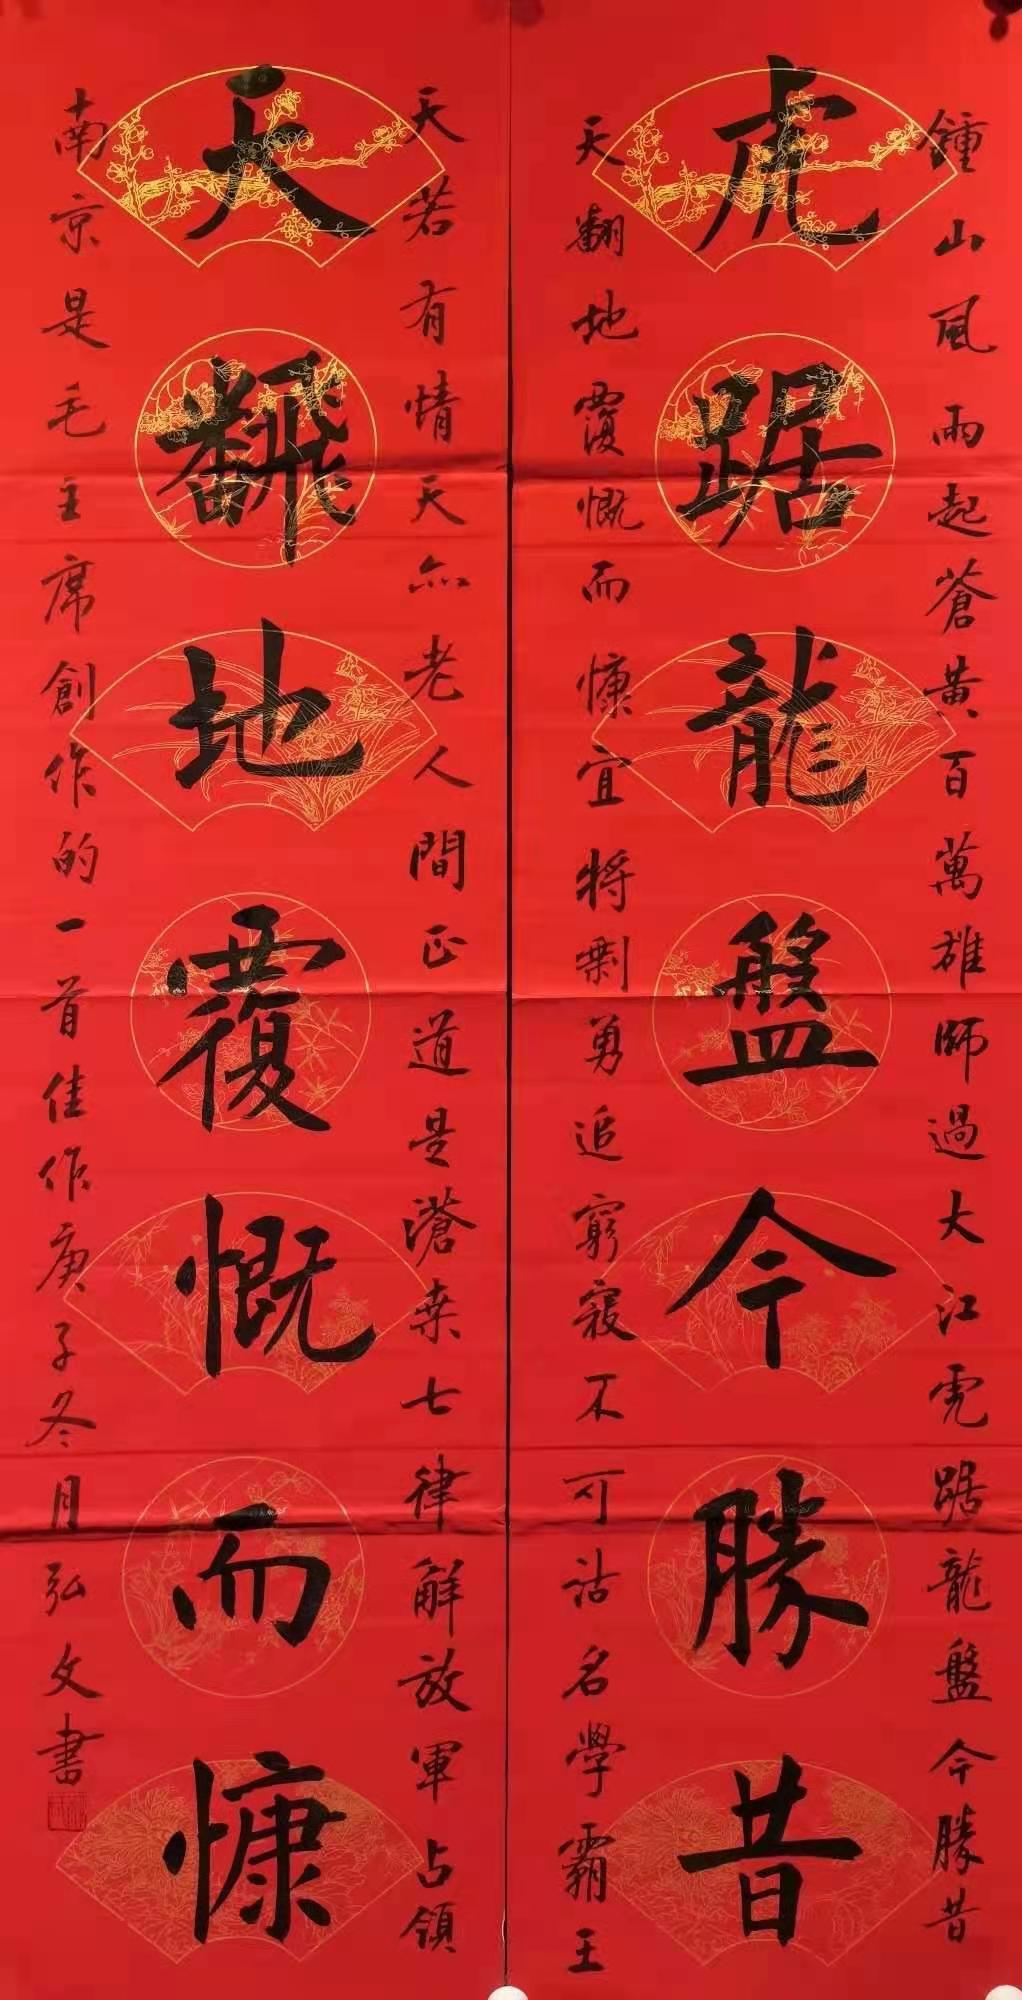 鍾山風雨起蒼黃百萬雄師過大江虎踞龍盤今勝昔
虎踞龍盤今勝昔
天翻地覆慨而慷宜將剩勇追窮寇不可沽名學霸王
天若有情天亦老人間正道是滄桑七律解放軍占領
天飜地覆慨而慷
南京是毛主席創作的一首佳作庚子冬月弘文書